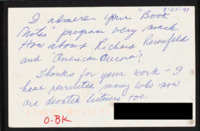 3-25-98
I admire your "Book
Notes" program very much.
How about Richard Rosenfeld
and "American Aurora"?
Thanks for your work - I
have recruited many who now
are devoted listeners too.
O.BK